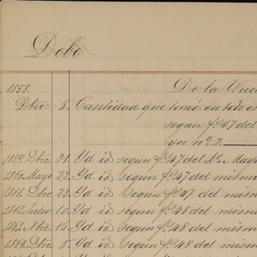 Debo
De la Vuel
1858.
Dbre 5. Cantidad que tomó en todo es
segun fº 47 del
yor nº 2
Dbre 31. Yd id segun fº 47 del Lº Mayo
Mayo 22. Yd id segun fº 47 del mismo
Dbre 23. Yd id segun fº 47 del mism
Julio 10. Yd id segun fº 48 del mism
Abre 15. Yd id segun fº 48 del mism
Dbre 5. Yd id segun fº 48 del mism